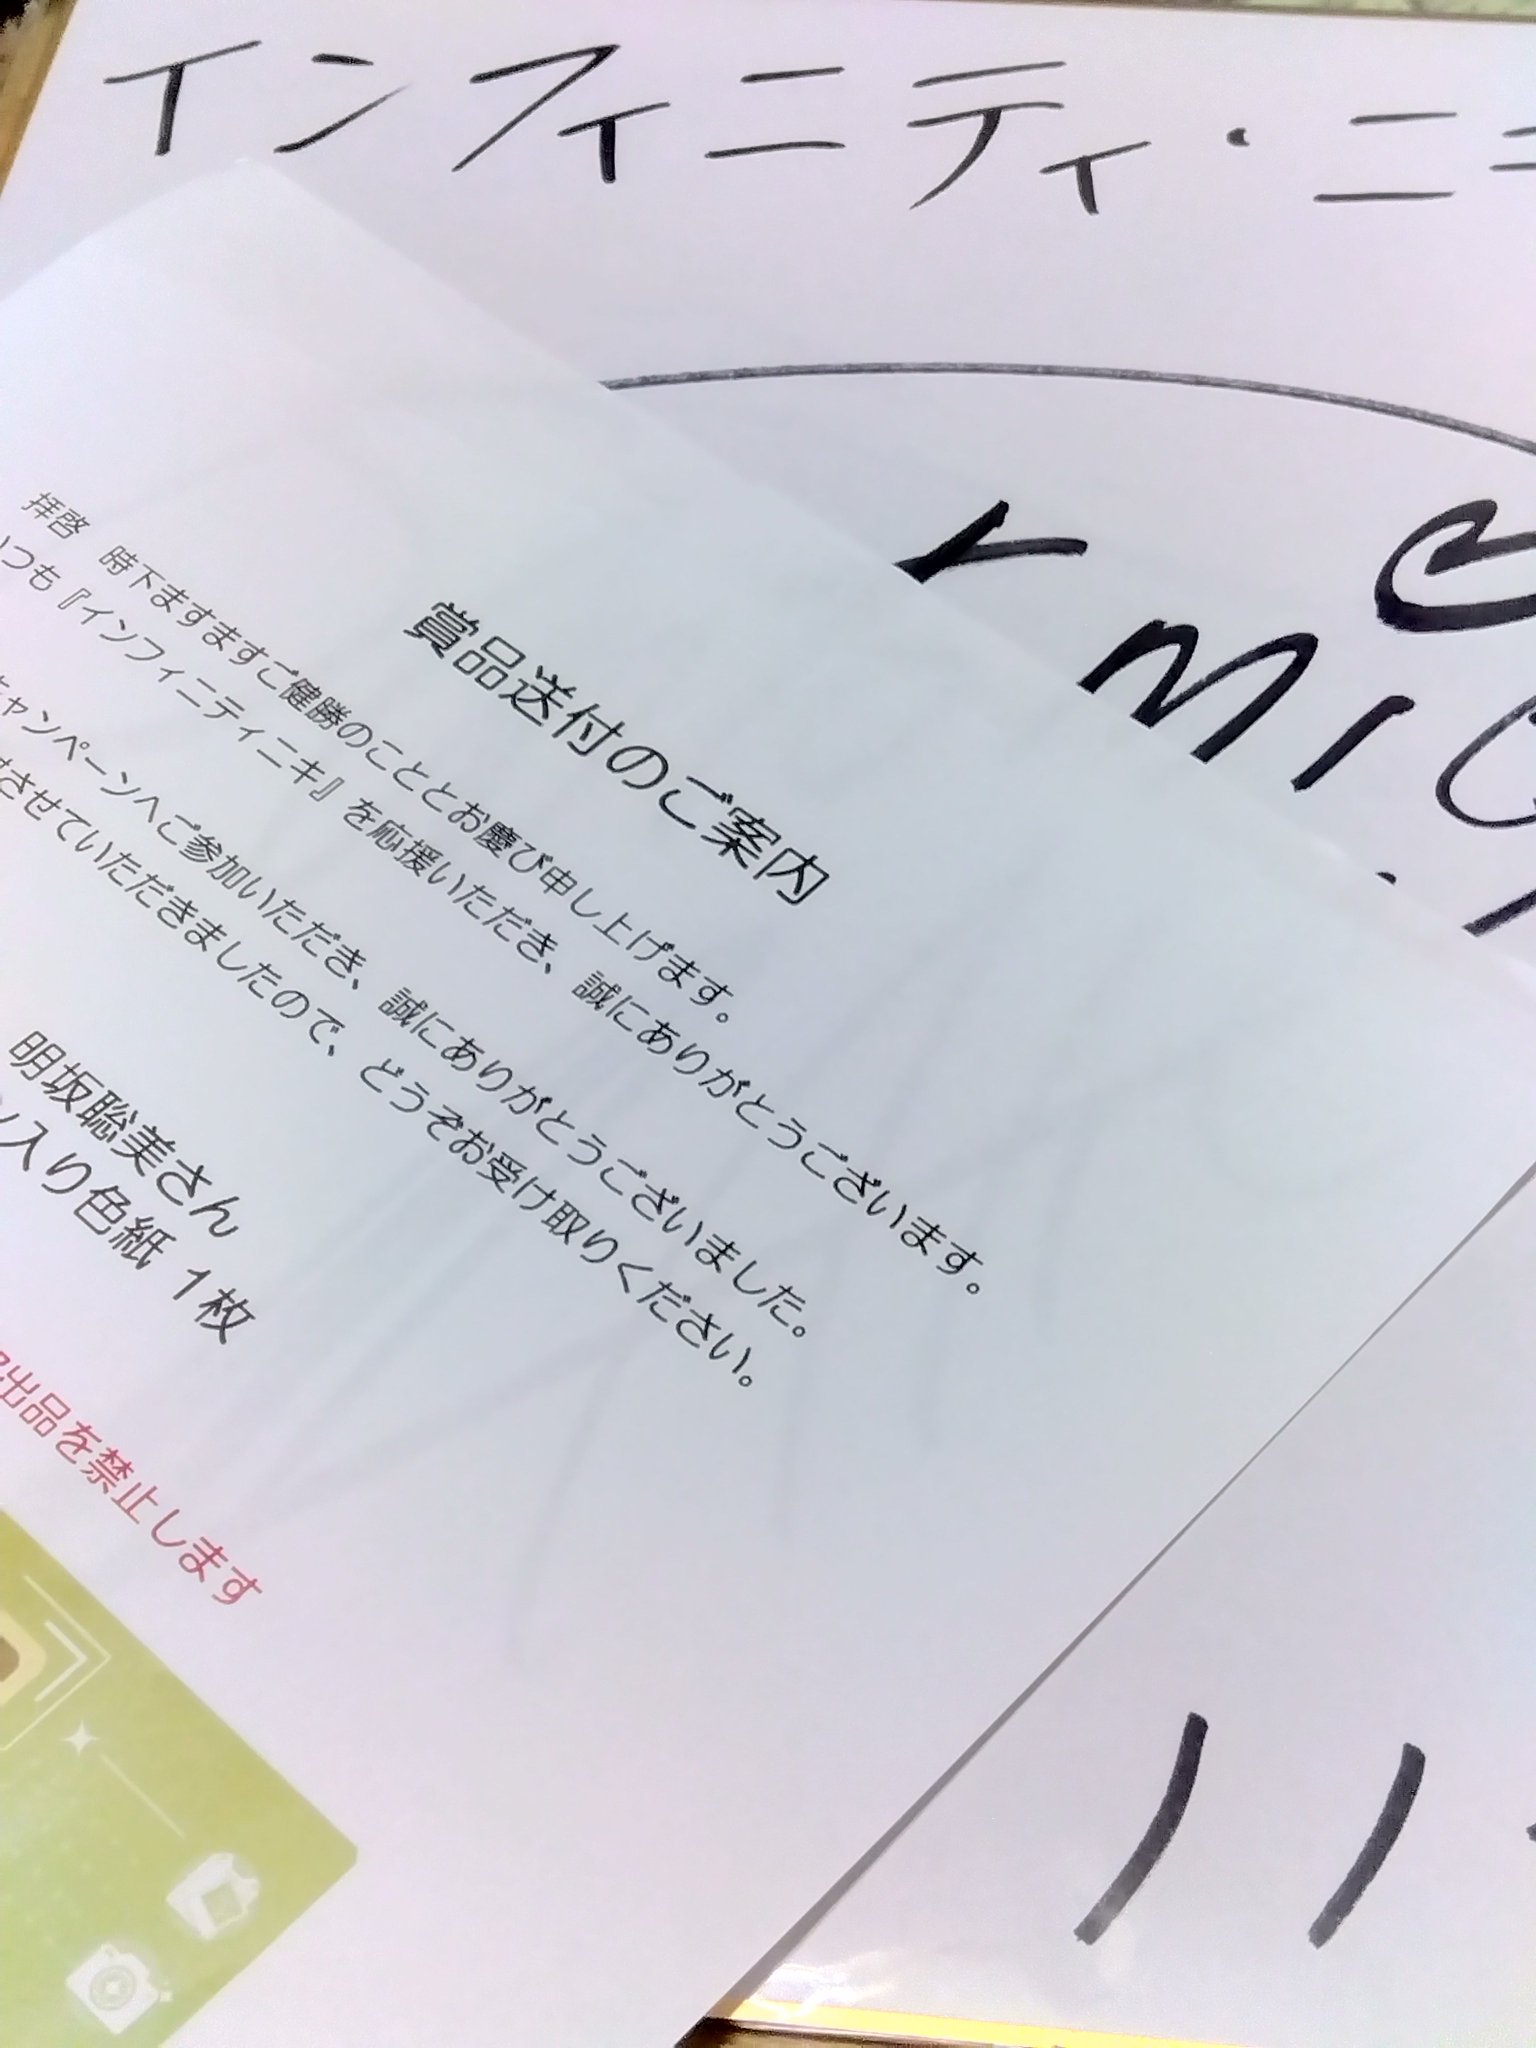 インフィニティ・ニ
賞品送付のご案内
拝啓 時下ますますご健勝のこととお慶び申し上げます。
いつも『インフィニティニキ』を応援いただき、誠にありがとうございます。
キャンペーンへご参加いただき、誠にありがとうございました。
させていただきましたので、どうぞお受け取りください。
明坂聡美さん
ン入り色紙 1枚
出品を禁止します